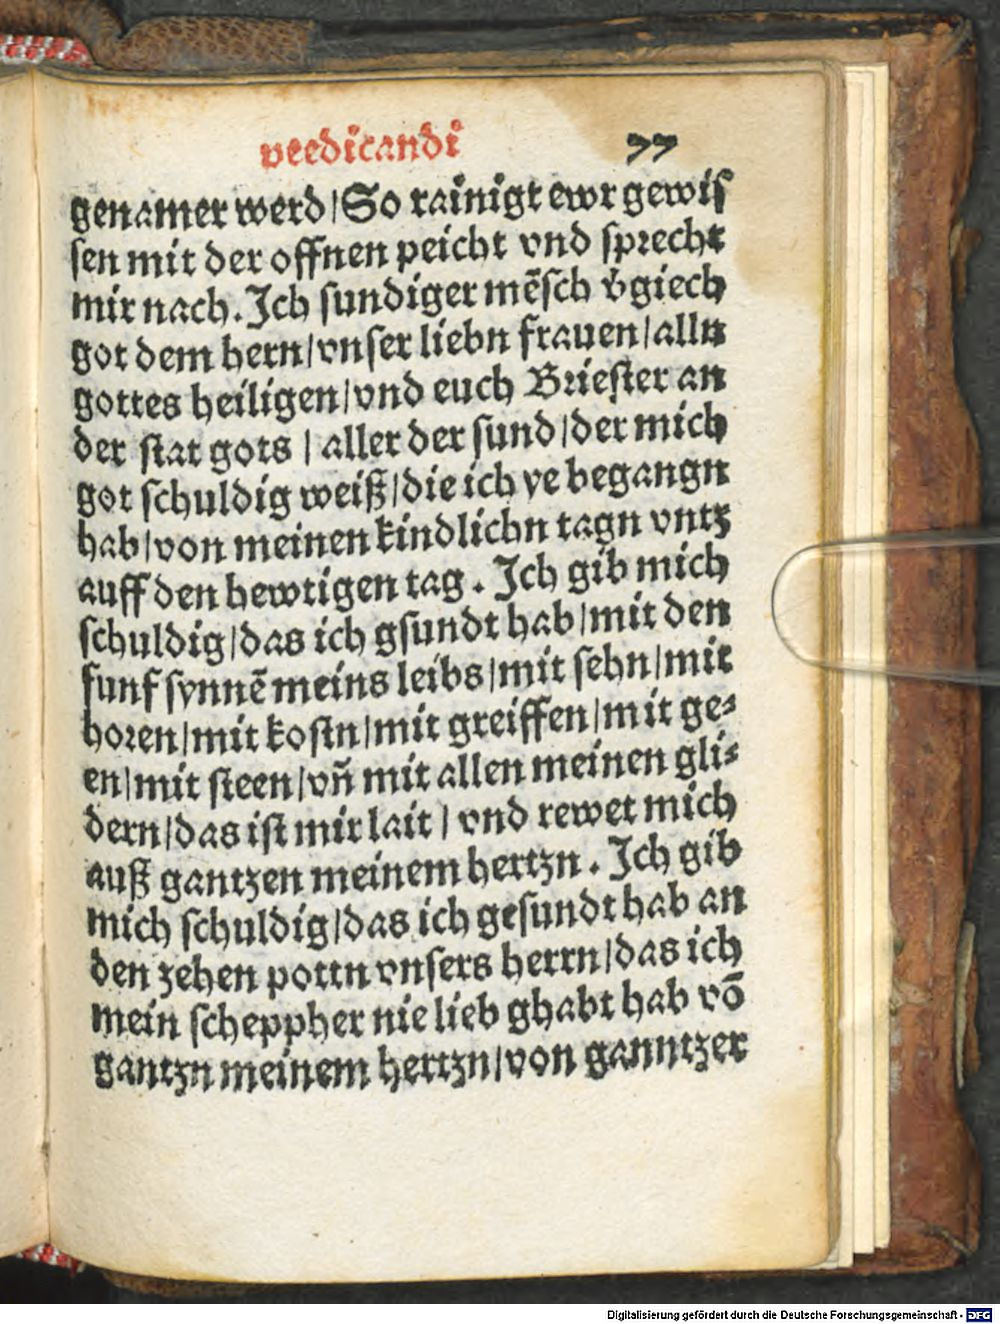 predicandi 77
genamer werd/So rainigt ewr gewiſ
ſen mit der offnen peicht vnd ſprecht
mir nach. Ich ſundiger mẽſch v̉giech
got dem hern/vnſer liebn frauen/alln
gottes heiligen/vnd euch Brieſter an
der ſtat gots / aller der ſund/der mich
got ſchuldig weiß/die ich ye begangn
hab/von meinen kindlichn tagn vntz
auff den hewtigen tag. Ich gib mich
ſchuldig/das ich gſundt hab/mit den
funf ſynnẽ meins leibs/mit ſehn/mit
horen/mit koſtn/mit greiffen/mit ge⸗
en/mit ſteen/vñ mit allen meinen gli⸗
dern/das iſt mir lait / vnd rewet mich
auß gantzen meinem hertzn. Ich gib
mich ſchuldig/das ich geſundt hab an
den zehen pottn vnſers herrn/das ich
mein ſcheppher nie lieb ghabt hab võ
gantzn meinem hertzn/von ganntzer
Digitalisierung gefördert durch die Deutsche Forschungsgemeinschaft - DFG